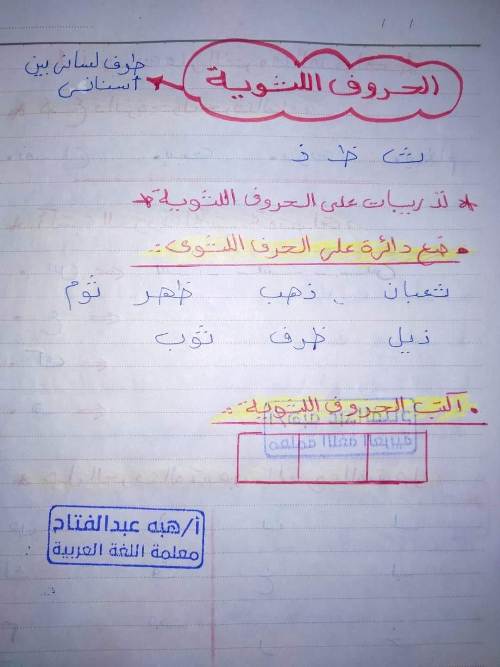 طرف لساني بين
أسناني
الحروف اللثوية
ث ظ ذ
* تدريبات على الحروف اللثوية *
• ضع دائرة على الحرف اللثوي :
ثعبان ذهب ظهر ثوم
ذيل ظرف ثوب
• اكتب الحروف اللثوية :
أ/هبه عبدالفتاح
معلمة اللغة العربية